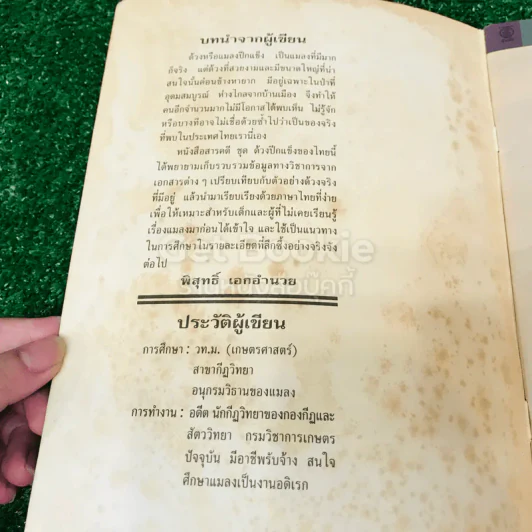 บทนำจากผู้เขียน
ด้วงหรือแมลงปีกแข็ง เป็นแมลงที่มีมาก
ก็จริง แต่ด้วงที่สวยงามและมีขนาดใหญ่ที่น่า
สนใจนั้นค่อนข้างหายาก มีอยู่เฉพาะในป่าที่
อุดมสมบูรณ์ ห่างไกลจากบ้านเมือง จึงทำให้
คนอีกจำนวนมากไม่มีโอกาสได้พบเห็น ไม่รู้จัก
หรือบางทีอาจไม่เชื่อด้วยซ้ำไปว่าเป็นของจริง
ที่พบในประเทศไทยเรานี่เอง
หนังสือสารคดี ชุด ด้วงปีกแข็งของไทยนี้
ได้พยายามเก็บรวบรวมข้อมูลทางวิชาการจาก
เอกสารต่าง ๆ เปรียบเทียบกับตัวอย่างด้วงจริง
ที่มีอยู่ แล้วนำมาเรียบเรียงด้วยภาษาไทยที่ง่าย
เพื่อให้เหมาะสำหรับเด็กและผู้ที่ไม่เคยเรียนรู้
เรื่องแมลงมาก่อนได้เข้าใจ และใช้เป็นแนวทาง
ในการศึกษาในรายละเอียดที่ลึกซึ้งอย่างจริงจัง
ต่อไป
Get Bookie
ร้านหนังสือเก็ทบุ๊คกี้
พิสุทธิ์ เอกอำนวย
ประวัติผู้เขียน
การศึกษา : วท.ม. (เกษตรศาสตร์)
สาขากีฏวิทยา
อนุกรมวิธานของแมลง
การทำงาน : อดีต นักกีฏวิทยาของกองกีฏและ
สัตววิทยา กรมวิชาการเกษตร
ปัจจุบัน มีอาชีพรับจ้าง สนใจ
ศึกษาแมลงเป็นงานอดิเรก